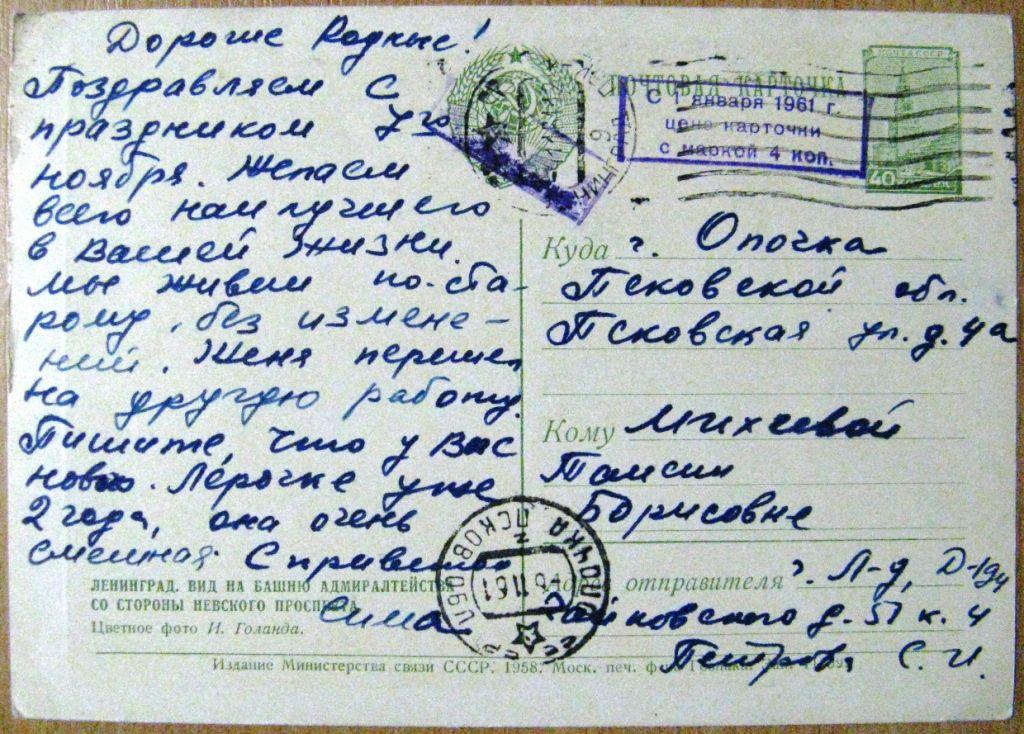 Дорогие Родные!
Поздравляем с
праздником 7го
ноября. Желаем
всего наилучшего
в Вашей жизни.
Мы живем по-ста-
рому, без измене-
ний. Женя перешел
на другую работу.
Пишите, что у Вас
нового. Лерочке уже
2 года, она очень
смешная. С приветом
Сима.
ЛЕНИНГРАД. ВИД НА БАШНЮ АДМИРАЛТЕЙСТВА
СО СТОРОНЫ НЕВСКОГО ПРОСПЕКТА
Цветное фото И. Голанда.
ПОЧТОВАЯ КАРТОЧКА
С 1 января 1961 г.
цена карточки
с маркой 4 коп.
ПОЧТА СССР
40
Куда г. Опочка
Псковской обл.
Псковская ул. д. 4а
Кому Михеевой
Таисии
Борисовне
ОПОЧКА ПСКОВ
61
Адрес отправителя г. Л-д, Д-194
Чайковского д. 51 к. 4
Петрова С. И.
Издание Министерства связи СССР. 1958. Моск. печ. ф-ка Гознака.